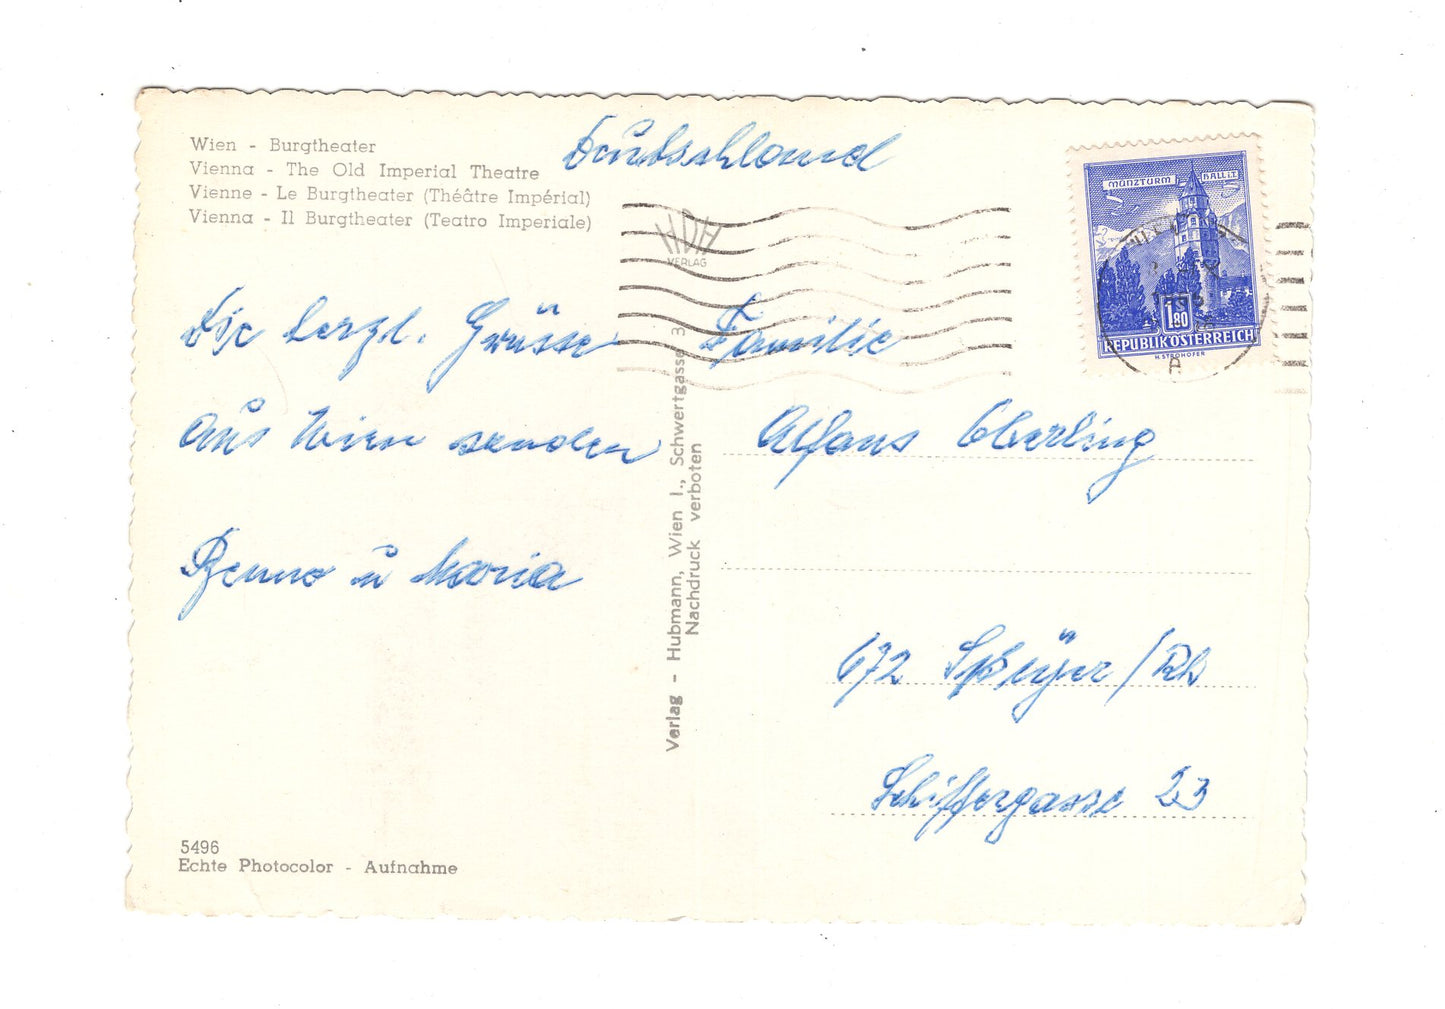 Wien - Burgtheater
Vienna - The Old Imperial Theatre
Vienne - Le Burgtheater (Théâtre Impérial)
Vienna - Il Burgtheater (Teatro Imperiale)
Deutschland
MÜNZTURM HALL i.T.
1.80
REPUBLIK ÖSTERREICH
H. STROHOFER
A
HDH
VERLAG
Die herzl. Grüsse
aus Wien senden
Benno u Maria
Familie
Alfons Oberling
672 Speÿer/Rh
Schiffergasse 23
Verlag - Hubmann, Wien I., Schwertgasse 3
Nachdruck verboten
5496
Echte Photocolor - Aufnahme